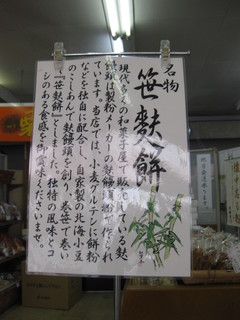 名物
笹麩餅
現代多くの和菓子屋で販売している麩
饅頭は製粉メーカーの麩饅頭粉で作られ
ています。当店では、小麦グルテンに餅粉
などを独自に配合し、自家製の北海小豆
のこしあんで麩饅頭を創り、巻笹で巻い
て『笹麩餅』としました。独特の風味とコ
シのある食感を御賞味くださいませ。